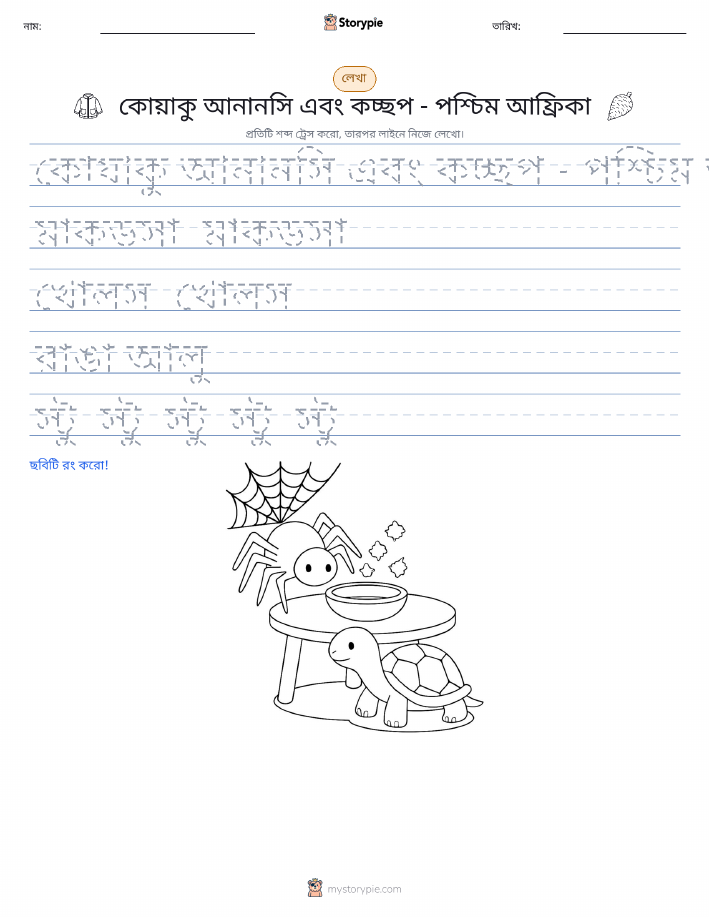 নাম:
Storypie
তারিখ:
লেখা
কোয়াকু আনানসি এবং কচ্ছপ - পশ্চিম আফ্রিকা
প্রতিটি শব্দ ট্রেস করো, তারপর লাইনে নিজে লেখো।
কোয়াকু আনানসি এবং কচ্ছপ - পশ্চিম
মাকড়সা মাকড়সা
খোলস খোলস
রাঙা আলু
স্টু স্টু স্টু স্টু স্টু
ছবিটি রং করো!
mystorypie.com